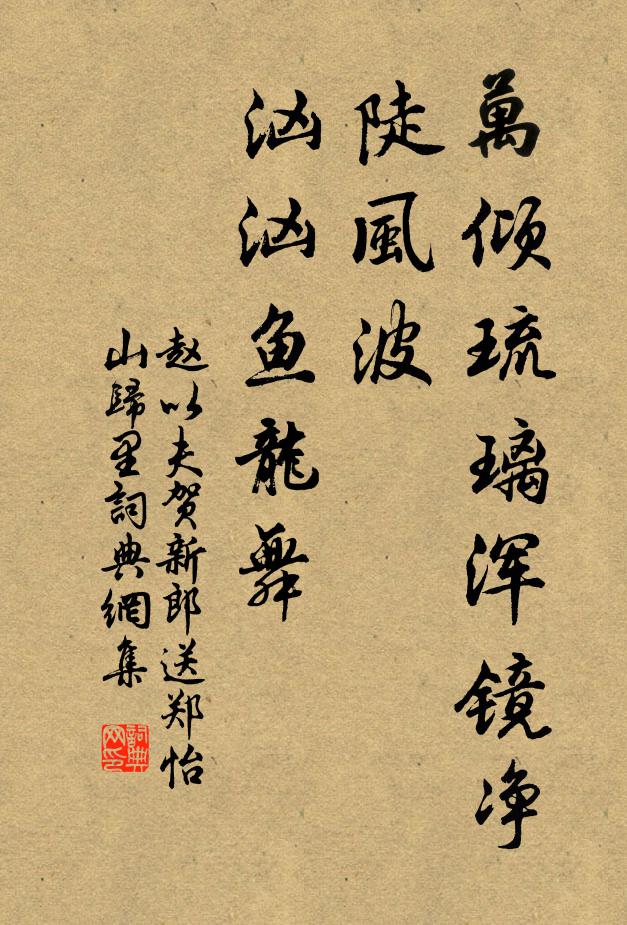 萬倾琉璃浑镜净
陡風波
汹汹鱼龍舞
赵以夫贺新郎送郑怡
山歸里詞典網集
詞典网印